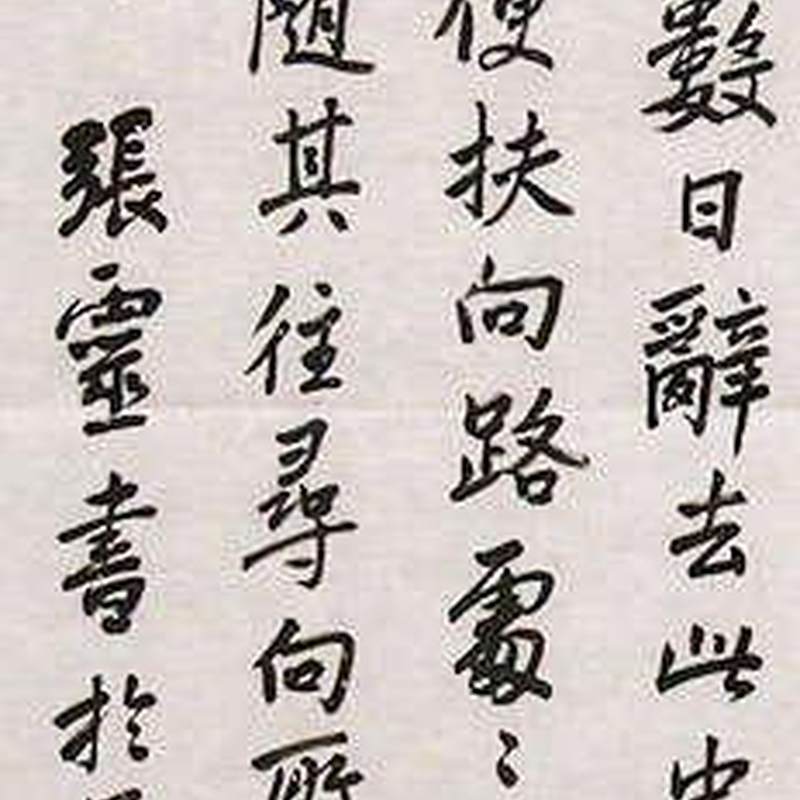 數日辭去此中
便扶向路處〻
隨其往尋向所
張靈書於